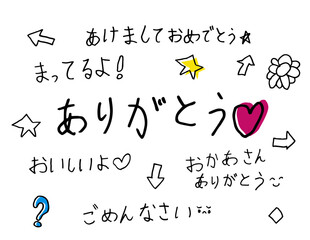 あけましておめでとう☆
まってるよ!
ありがとう♡
おいしいよ♡
おかあさん
ありがとう
ごめんなさい
?